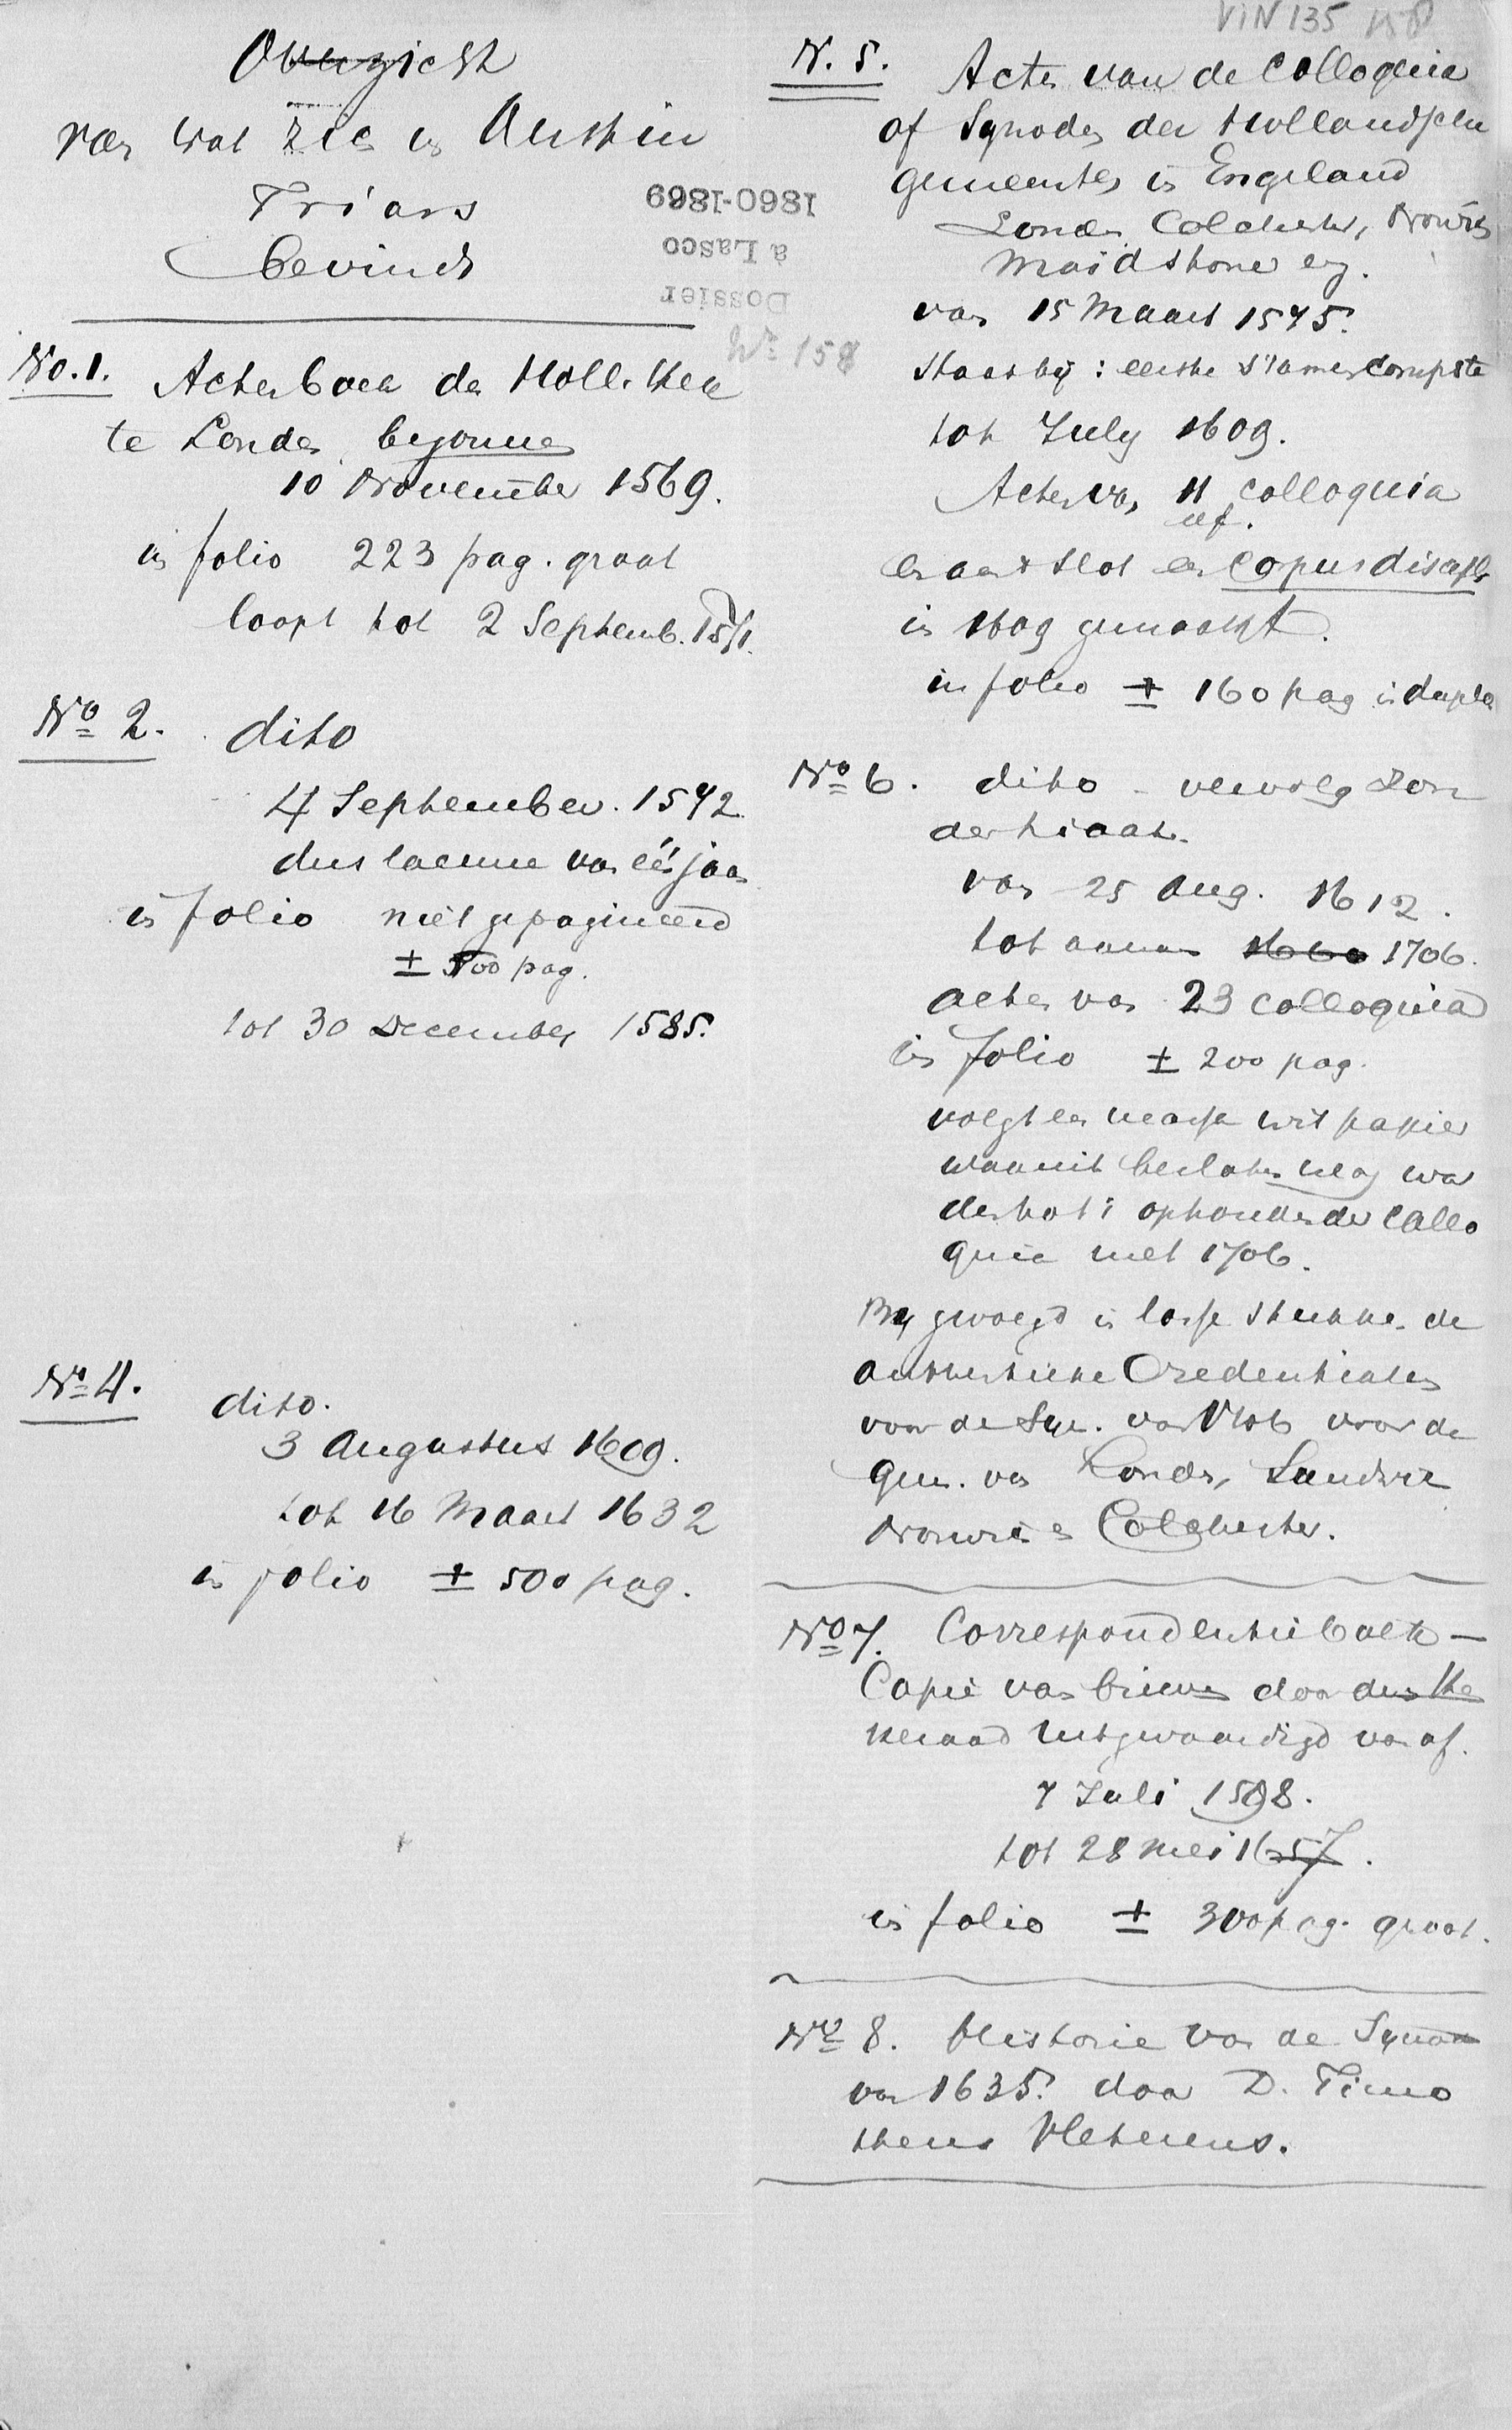 Overzicht
van wat zic in Austin
Friars
bevindt
1860-1869
à Lasco
Dossier
No 158
No. 1. Actenboek der Holl. Kerk
te Londen begonnen
10 November 1569.
in folio 223 pag. groot
loopt tot 2 Septemb. 1571.
No 2. dito
4 September. 1572
dus lacune van één jaar
in folio niet gepagineerd
± 500 pag.
tot 30 December 1585.
No 4. dito.
3 Augustus 1609.
tot 16 Maart 1632
in folio ± 500 pag.
VIN 135 158
N. 5. Acten van de Colloquia
of Synoden der Hollandschen
gemeenten in Engeland
Londen, Colchester, Norwich
Maidstone en.
van 15 Maart 1575.
Staat bij: eerste t'samencompste
tot July 1609.
Acten van 11 colloquia
en aan 't slot een Corpus discipl.
in 1609 gemaakt.
in folio ± 160 pag in duplo
No 6. dito - vervolg zon
der hiaat.
van 25 Aug. 1612.
tot aan 1660 1706.
acten van 23 colloquia
in folio ± 200 pag.
volgt een massa wit papier
waaruit besloten mag wor
den tot 't ophouden der Collo
quia met 1706.
Bijgevoegd in losse stukken de
authentieke Credentialen
voor de Syn. van 1706 voor de
gem. van Londen, Sandwic
Norwic en Colchester.
No 7. Correspondentieboek —
Copie van brieven door den Ke
rkeraad uitgevaardigd vanaf.
7 Juli 1598.
tot 28 mei 1657.
in folio ± 300 pag. groot.
No 8. Historie van de Synode
van 1635. door D. Timo
theus Vleteren.